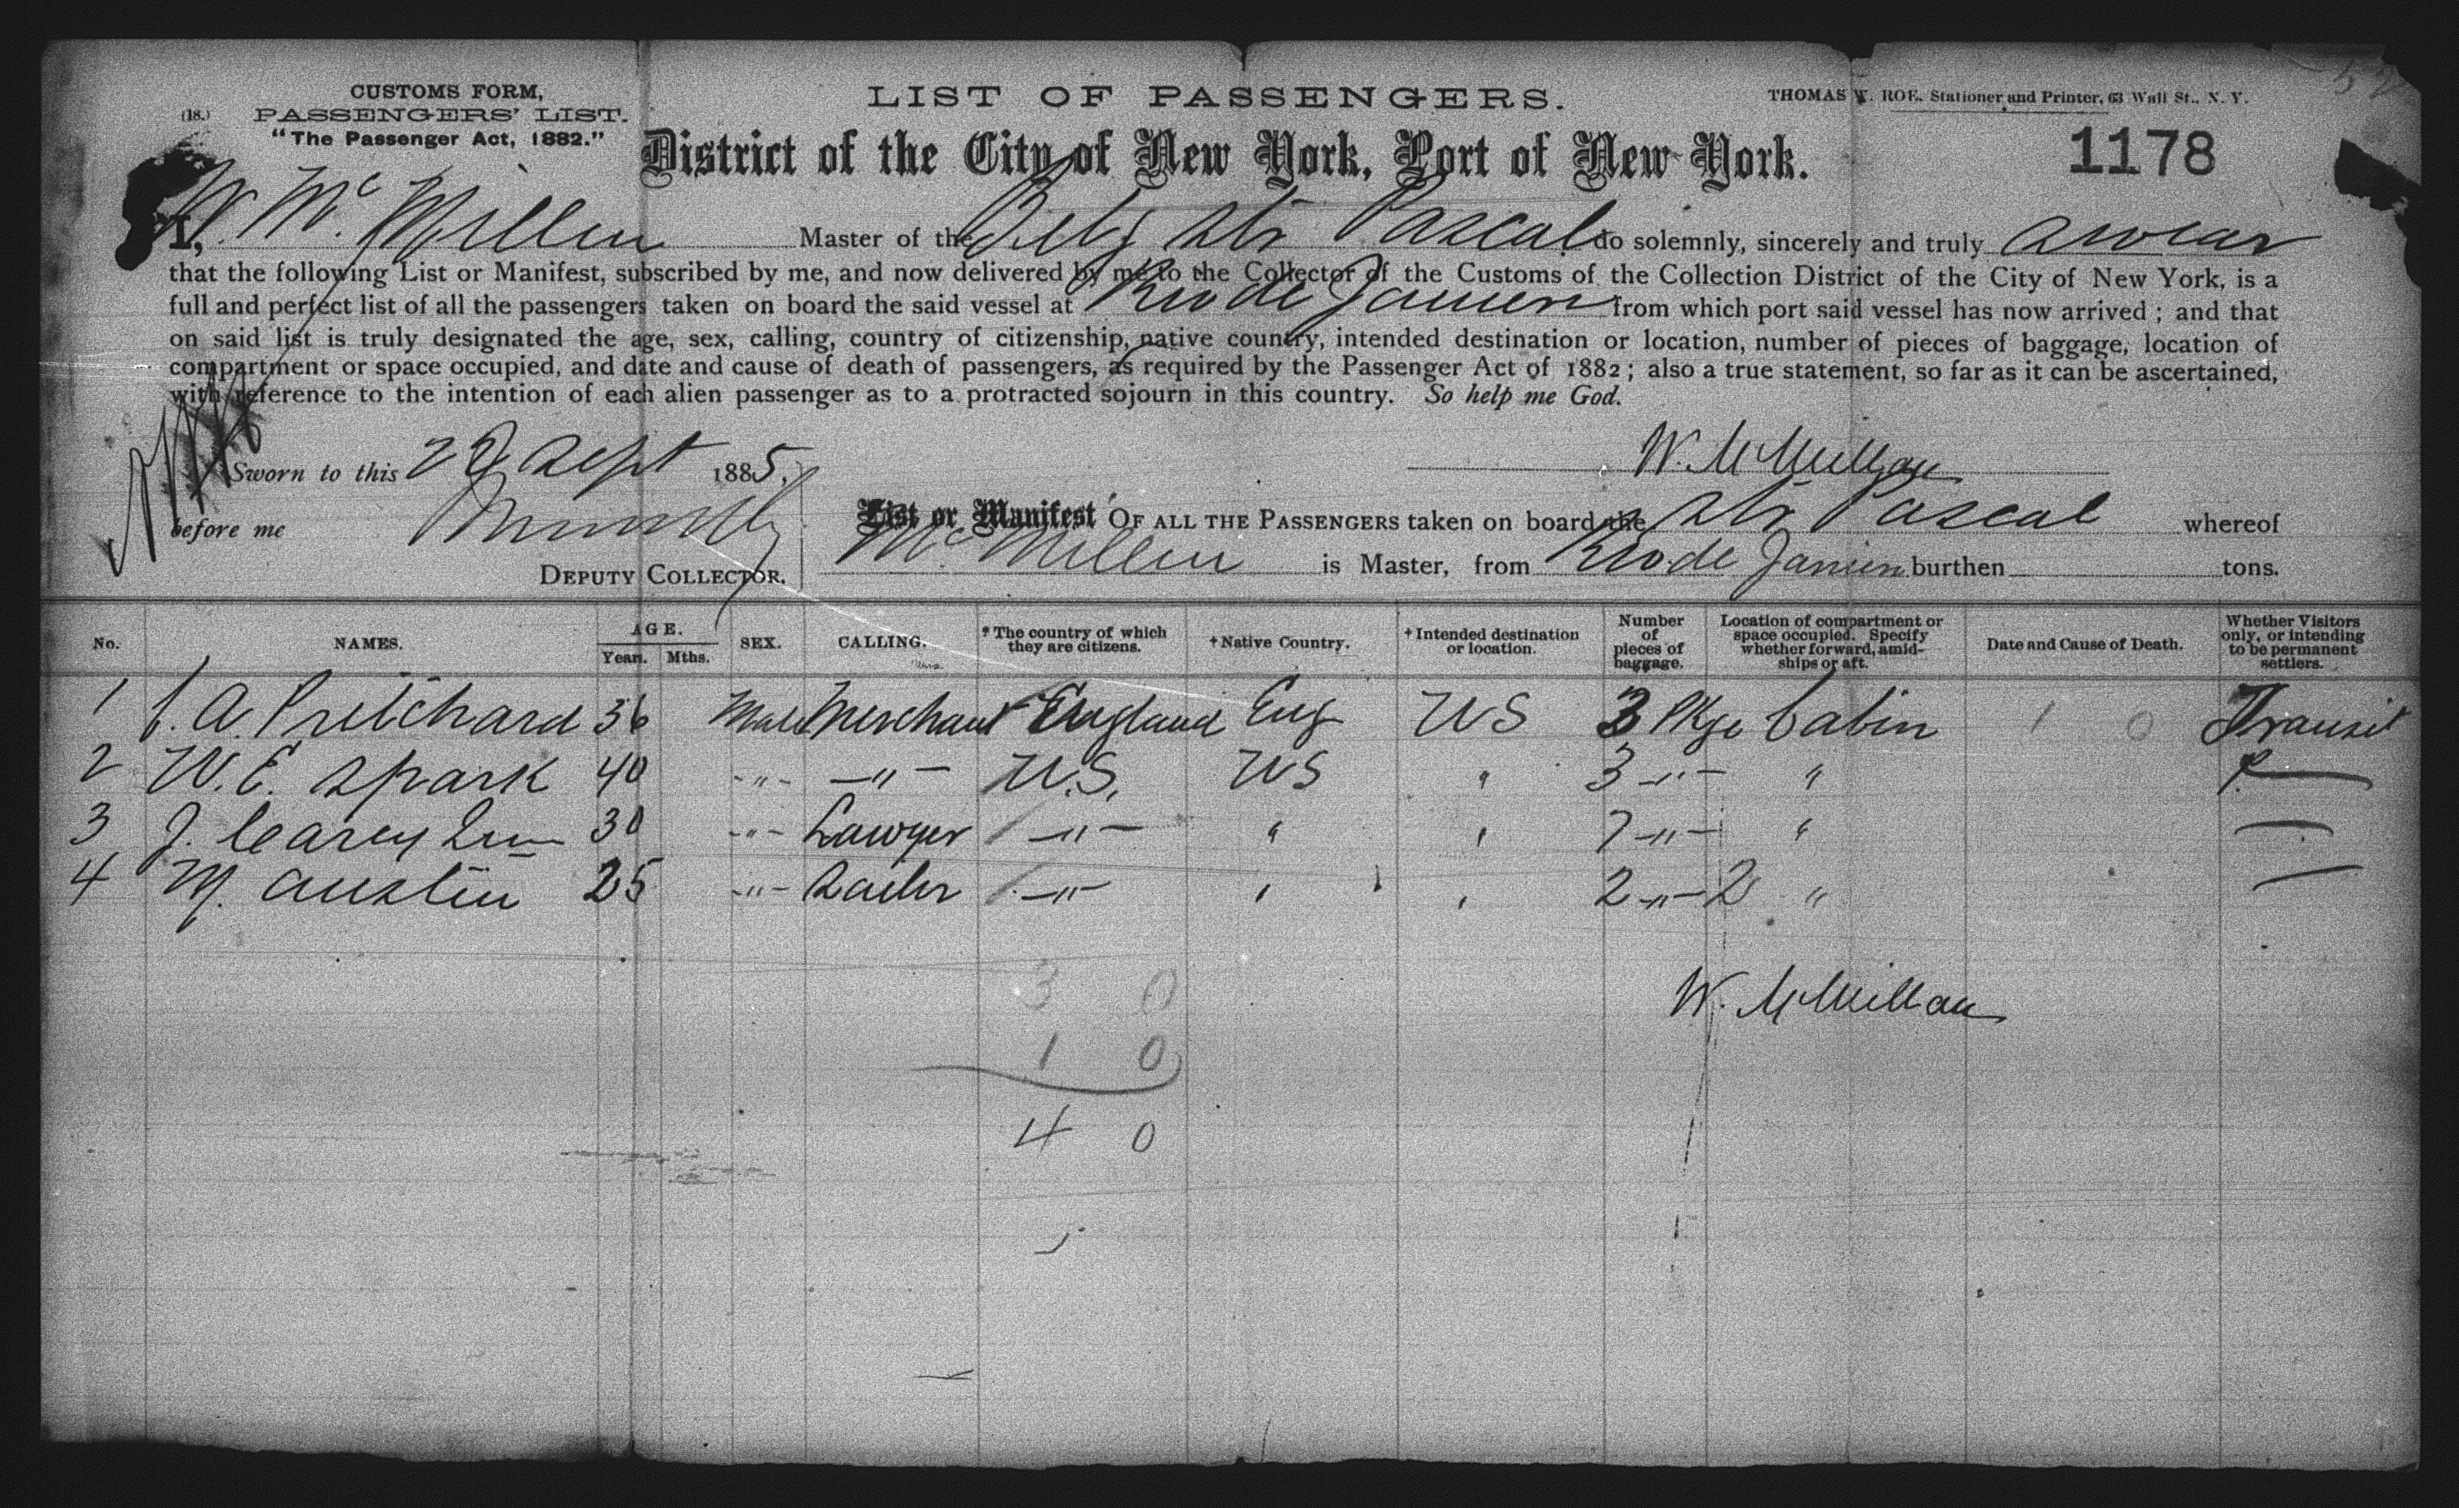 CUSTOMS FORM,
(18.) PASSENGERS' LIST.
"The Passenger Act, 1882."
LIST OF PASSENGERS.
THOMAS W. ROE, Stationer and Printer, 63 Wall St., N. Y.
52
District of the City of New York, Port of New York.
1178
I, W. Mc. Millen Master of the Belg Str Pascal do solemnly, sincerely and truly swear
that the following List or Manifest, subscribed by me, and now delivered by me to the Collector of the Customs of the Collection District of the City of New York, is a
full and perfect list of all the passengers taken on board the said vessel at Rio de Janiero from which port said vessel has now arrived ; and that
on said list is truly designated the age, sex, calling, country of citizenship, native country, intended destination or location, number of pieces of baggage, location of
compartment or space occupied, and date and cause of death of passengers, as required by the Passenger Act of 1882 ; also a true statement, so far as it can be ascertained,
with reference to the intention of each alien passenger as to a protracted sojourn in this country. So help me God.
Sworn to this 29 Sept 1885,
W. McMillan
before me
DEPUTY COLLECTOR.
List or Manifest OF ALL THE PASSENGERS taken on board the Str Pascal whereof
Mc Millen is Master, from Rio de Janiero burthen tons.
No. NAMES. AGE. Years. Mths. SEX. CALLING. * The country of which they are citizens. † Native Country. † Intended destination or location. Number of pieces of baggage. Location of compartment or space occupied. Specify whether forward, amidships or aft. Date and Cause of Death. Whether Visitors only, or intending to be permanent settlers.
1 A. Pritchard 36 Male Merchant England Eng US 3 Pkge Cabin 1 0 Transit
2 W. E. Spark 40 -"- -"- U.S. US " 3 -"- "
3 J. Carey 30 -"- Lawyer -"- " " 7 -"- "
4 M. Austin 25 -"- Sailor -"- " " 2 -"- 2 "
3 0
W. McMillan
1 0
4 0